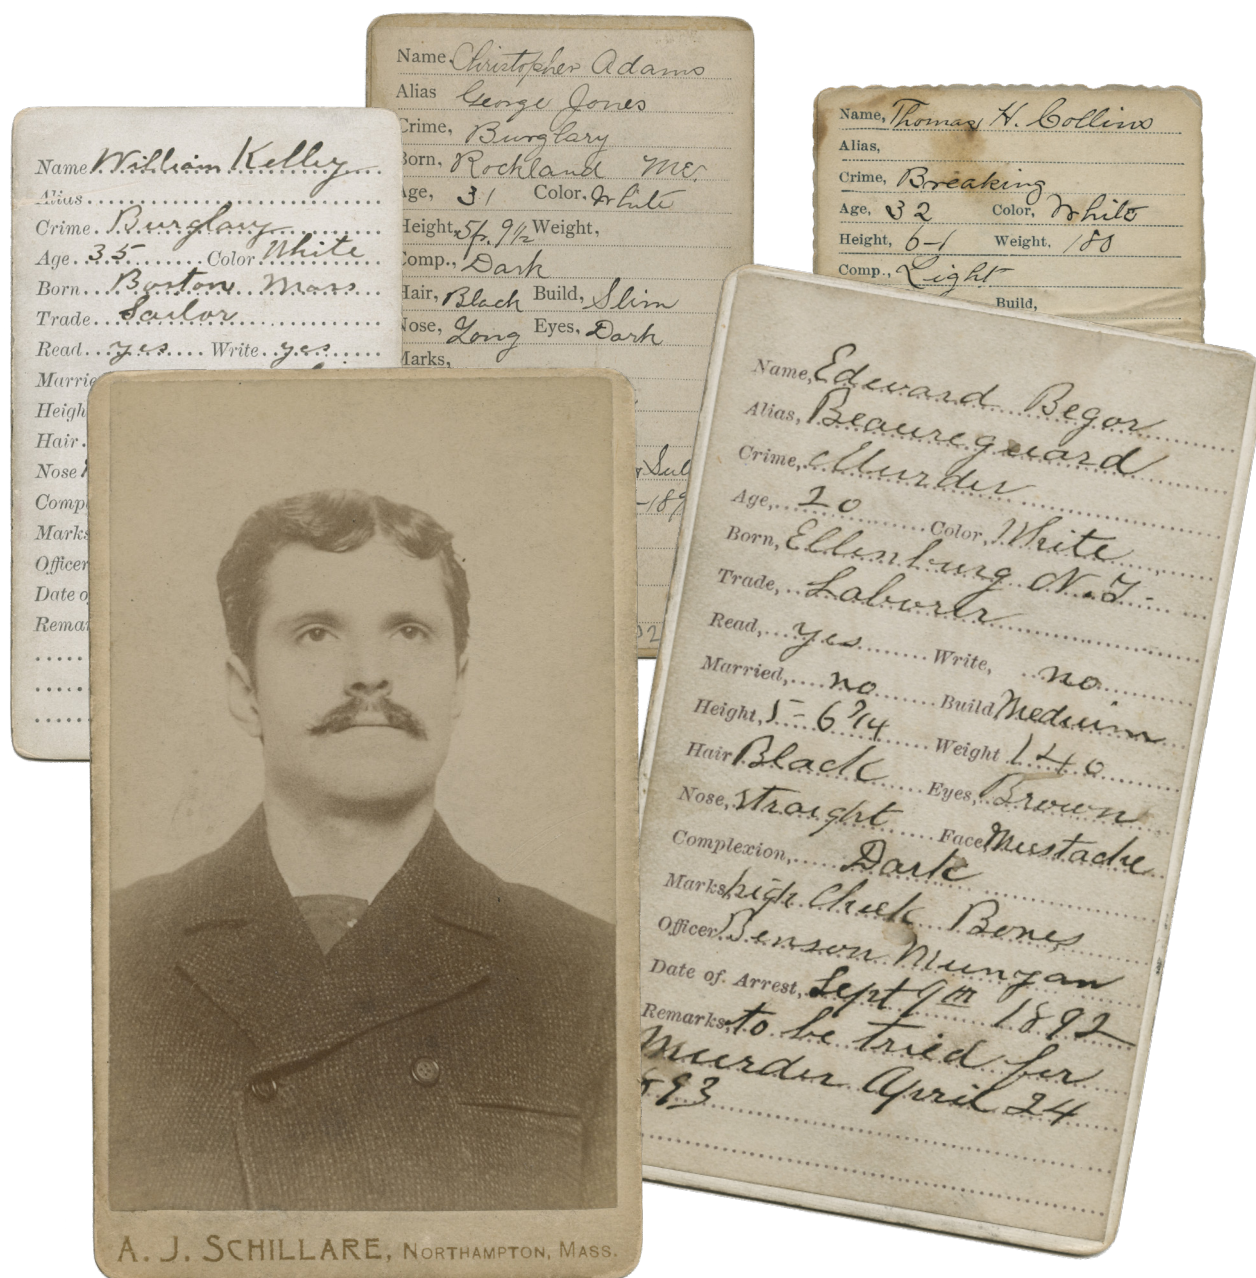 Name William Kelley
Alias
Crime Burglary
Age 35 Color White
Born Boston Mass
Trade Sailor
Read yes Write yes
Marrie
Heigh
Hair
Nose
Comp
Marks
Officer
Date o
Remar
Name, Christopher Adams
Alias George Jones
Crime, Burglary
Born, Rockland Me.
Age, 31 Color, White
Height, 5f. 9½ Weight,
Comp., Dark
Hair, Black Build, Slim
Nose, Long Eyes, Dark
Marks,
-189
Name, Thomas H. Collins
Alias,
Crime, Breaking
Age, 32 Color, White
Height, 6-1 Weight, 180
Comp., Light
Build,
Name, Edward Begor
Alias, Beaureguard
Crime, Murder
Age, 20 Color, White
Born, Ellenburg N.Y.
Trade, Laborer
Read, yes Write, no
Married, no Build Medium
Height, 5-6 3/4 Weight 140
Hair Black Eyes, Brown
Nose, straight Face, Mustache
Complexion, Dark
Marks, high Cheek Bones
Officer Benson Munyan
Date of Arrest, Sept 9th 1892
Remarks, to be tried for
Murder April 24
893
A. J. SCHILLARE, NORTHAMPTON, MASS.